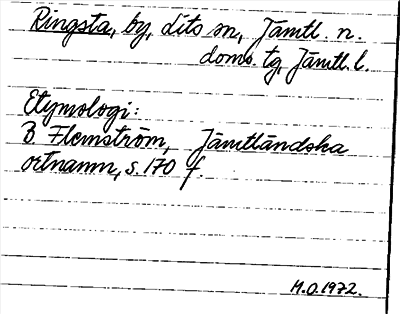 Ringsta, by, Lits sn, Jämtl. n.
doms. tg, Jämtl. l.
Etymologi:
B. Flemström, Jämtländska
ortnamn, s. 170 f.
M.O. 1972.